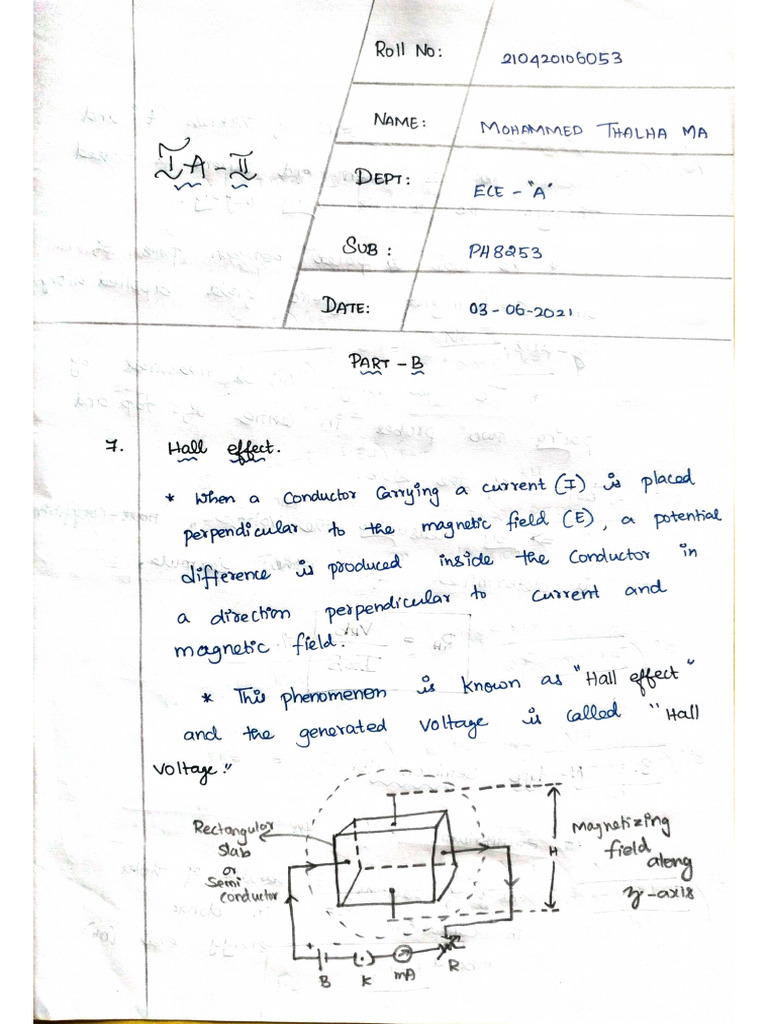 Roll No: 210420106053
NAME: MOHAMMED THALHA MA
IA - II
DEPT: ECE - "A"
SUB: PH8253
DATE: 03-06-2021
PART - B
7. Hall effect.
* When a conductor carrying a current (I) is placed
perpendicular to the magnetic field (E), a potential
difference is produced inside the conductor in
a direction perpendicular to current and
magnetic field.
* This phenomenon is known as "Hall effect"
and the generated voltage is called "Hall
voltage."
Rectangular
slab
or
Semi
conductor
H
Magnetizing
field
along
z-axis
+
B
K
mA
R